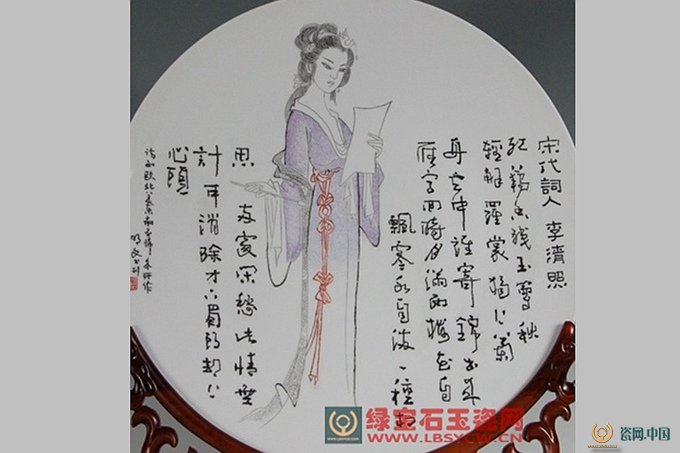 宋代詞人 李清照
红藕香残玉簟秋
輕解羅裳独上蘭
舟云中誰寄錦书来
雁字回時月满西楼花自
飄零水自流一種相
思 两處闲愁此情無
計可消除才下眉头却上
心頭
绿宝石玉瓷网
WWW.LBSYCW.CN
瓷网.中国